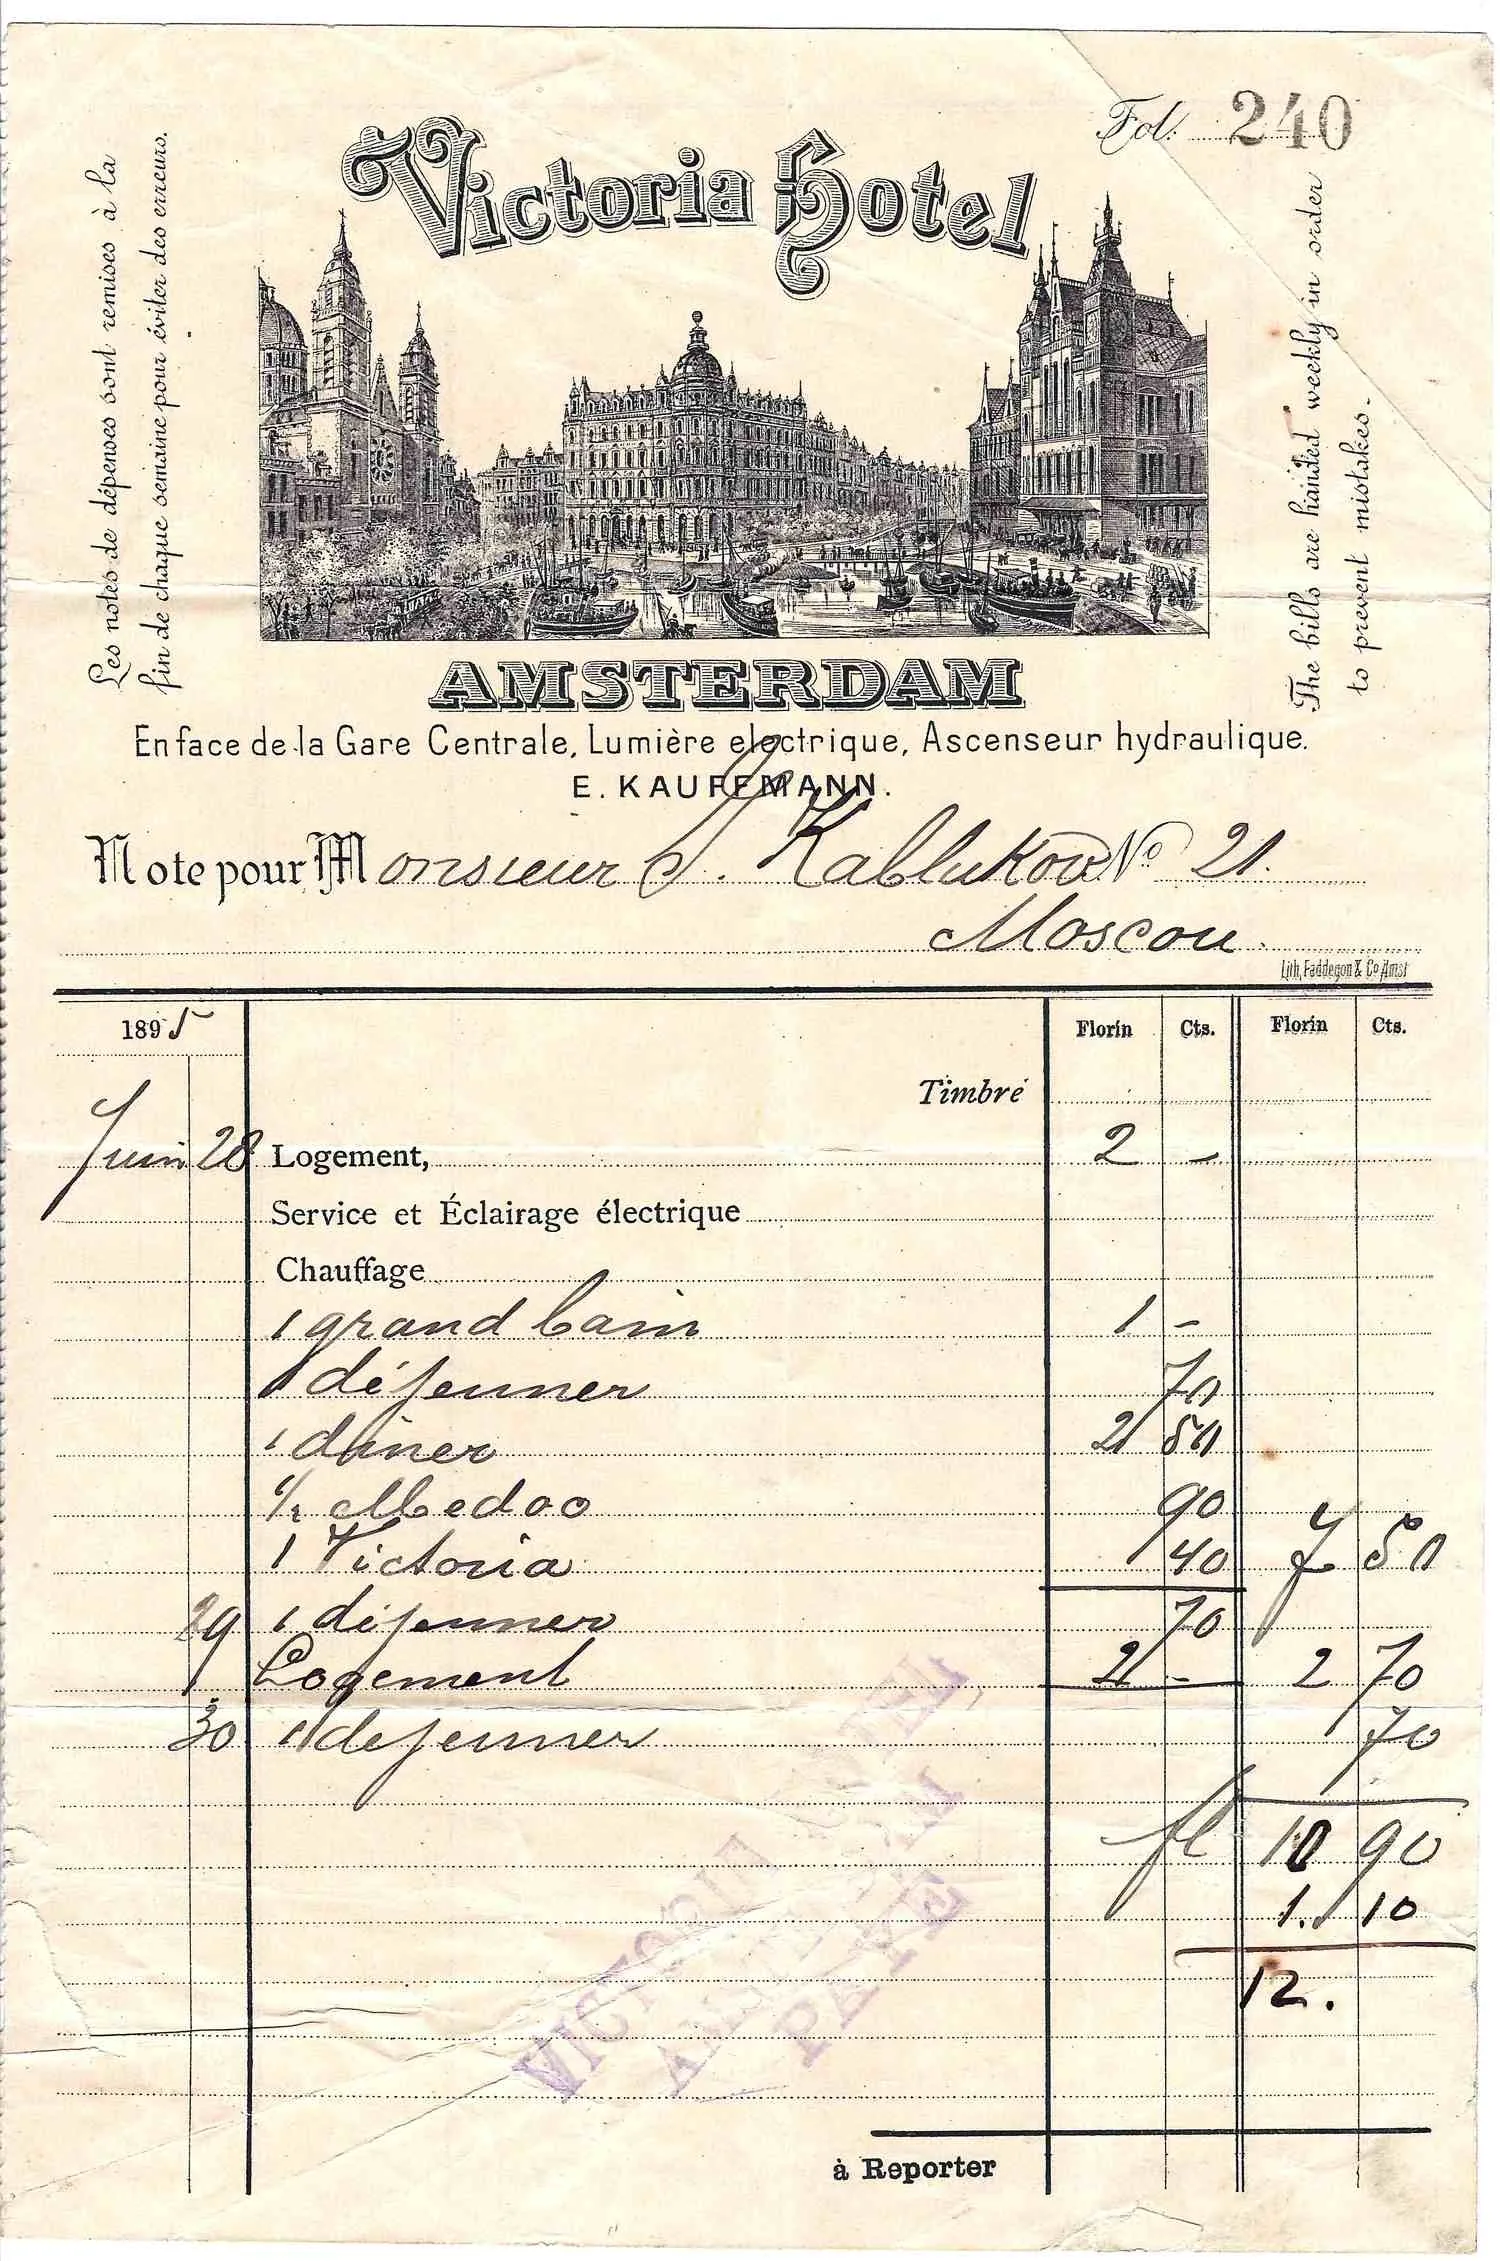 Fol. 240
Victoria Hotel
Les notes de dépenses sont remises à la
fin de chaque semaine pour éviter des erreurs.
The bills are handed weekly in order
to prevent mistakes.
AMSTERDAM
En face de la Gare Centrale, Lumière electrique, Ascenseur hydraulique.
E. KAUFFMANN.
Note pour Monsieur J. Kablukow No 21.
Moscou.
Lith, Faddegon & Co Amst
1895 Florin Cts. Florin Cts.
Timbré
Juin 28 Logement, 2 –
Service et Éclairage électrique
Chauffage
1 grand bain 1 –
1 déjeuner 70
1 diner 2 50
1/2 Medoc 90
1 Victoria 40 7 50
29 1 déjeuner 70
Logement 2 – 2 70
30 1 dejeuner 70
fl 10 90
1. 10
12.
VICTORIA HOTEL
AMSTERDAM
PAYÉ
à Reporter